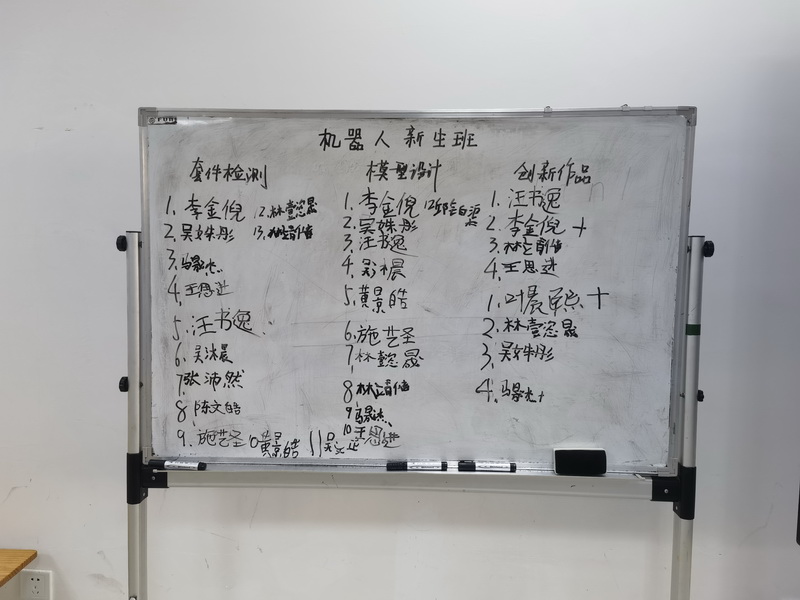 机器人新生班
套件检测
1. 李金倪
2. 吴姝彤
3. 马晨杰
4. 王思进
5. 汪书逸
6. 吴沐晨
7. 张沛然
8. 陈文皓
9. 施艺圣
10 黄景皓
11 吴文正
12. 林壹恣晟
13. 林立育倍
模型设计
1. 李金倪
2. 吴姝彤
3. 汪书逸
4. 吴沐晨
5. 黄景皓
6. 施艺圣
7. 林懿晟
8 林立育倍
9
10 王思进
12
创新作品
1. 汪书逸
2. 李金倪 +
3. 林立育倍
4. 王思进
1. 叶晨 +
2. 林壹恣晟
3. 吴姝彤
4. +